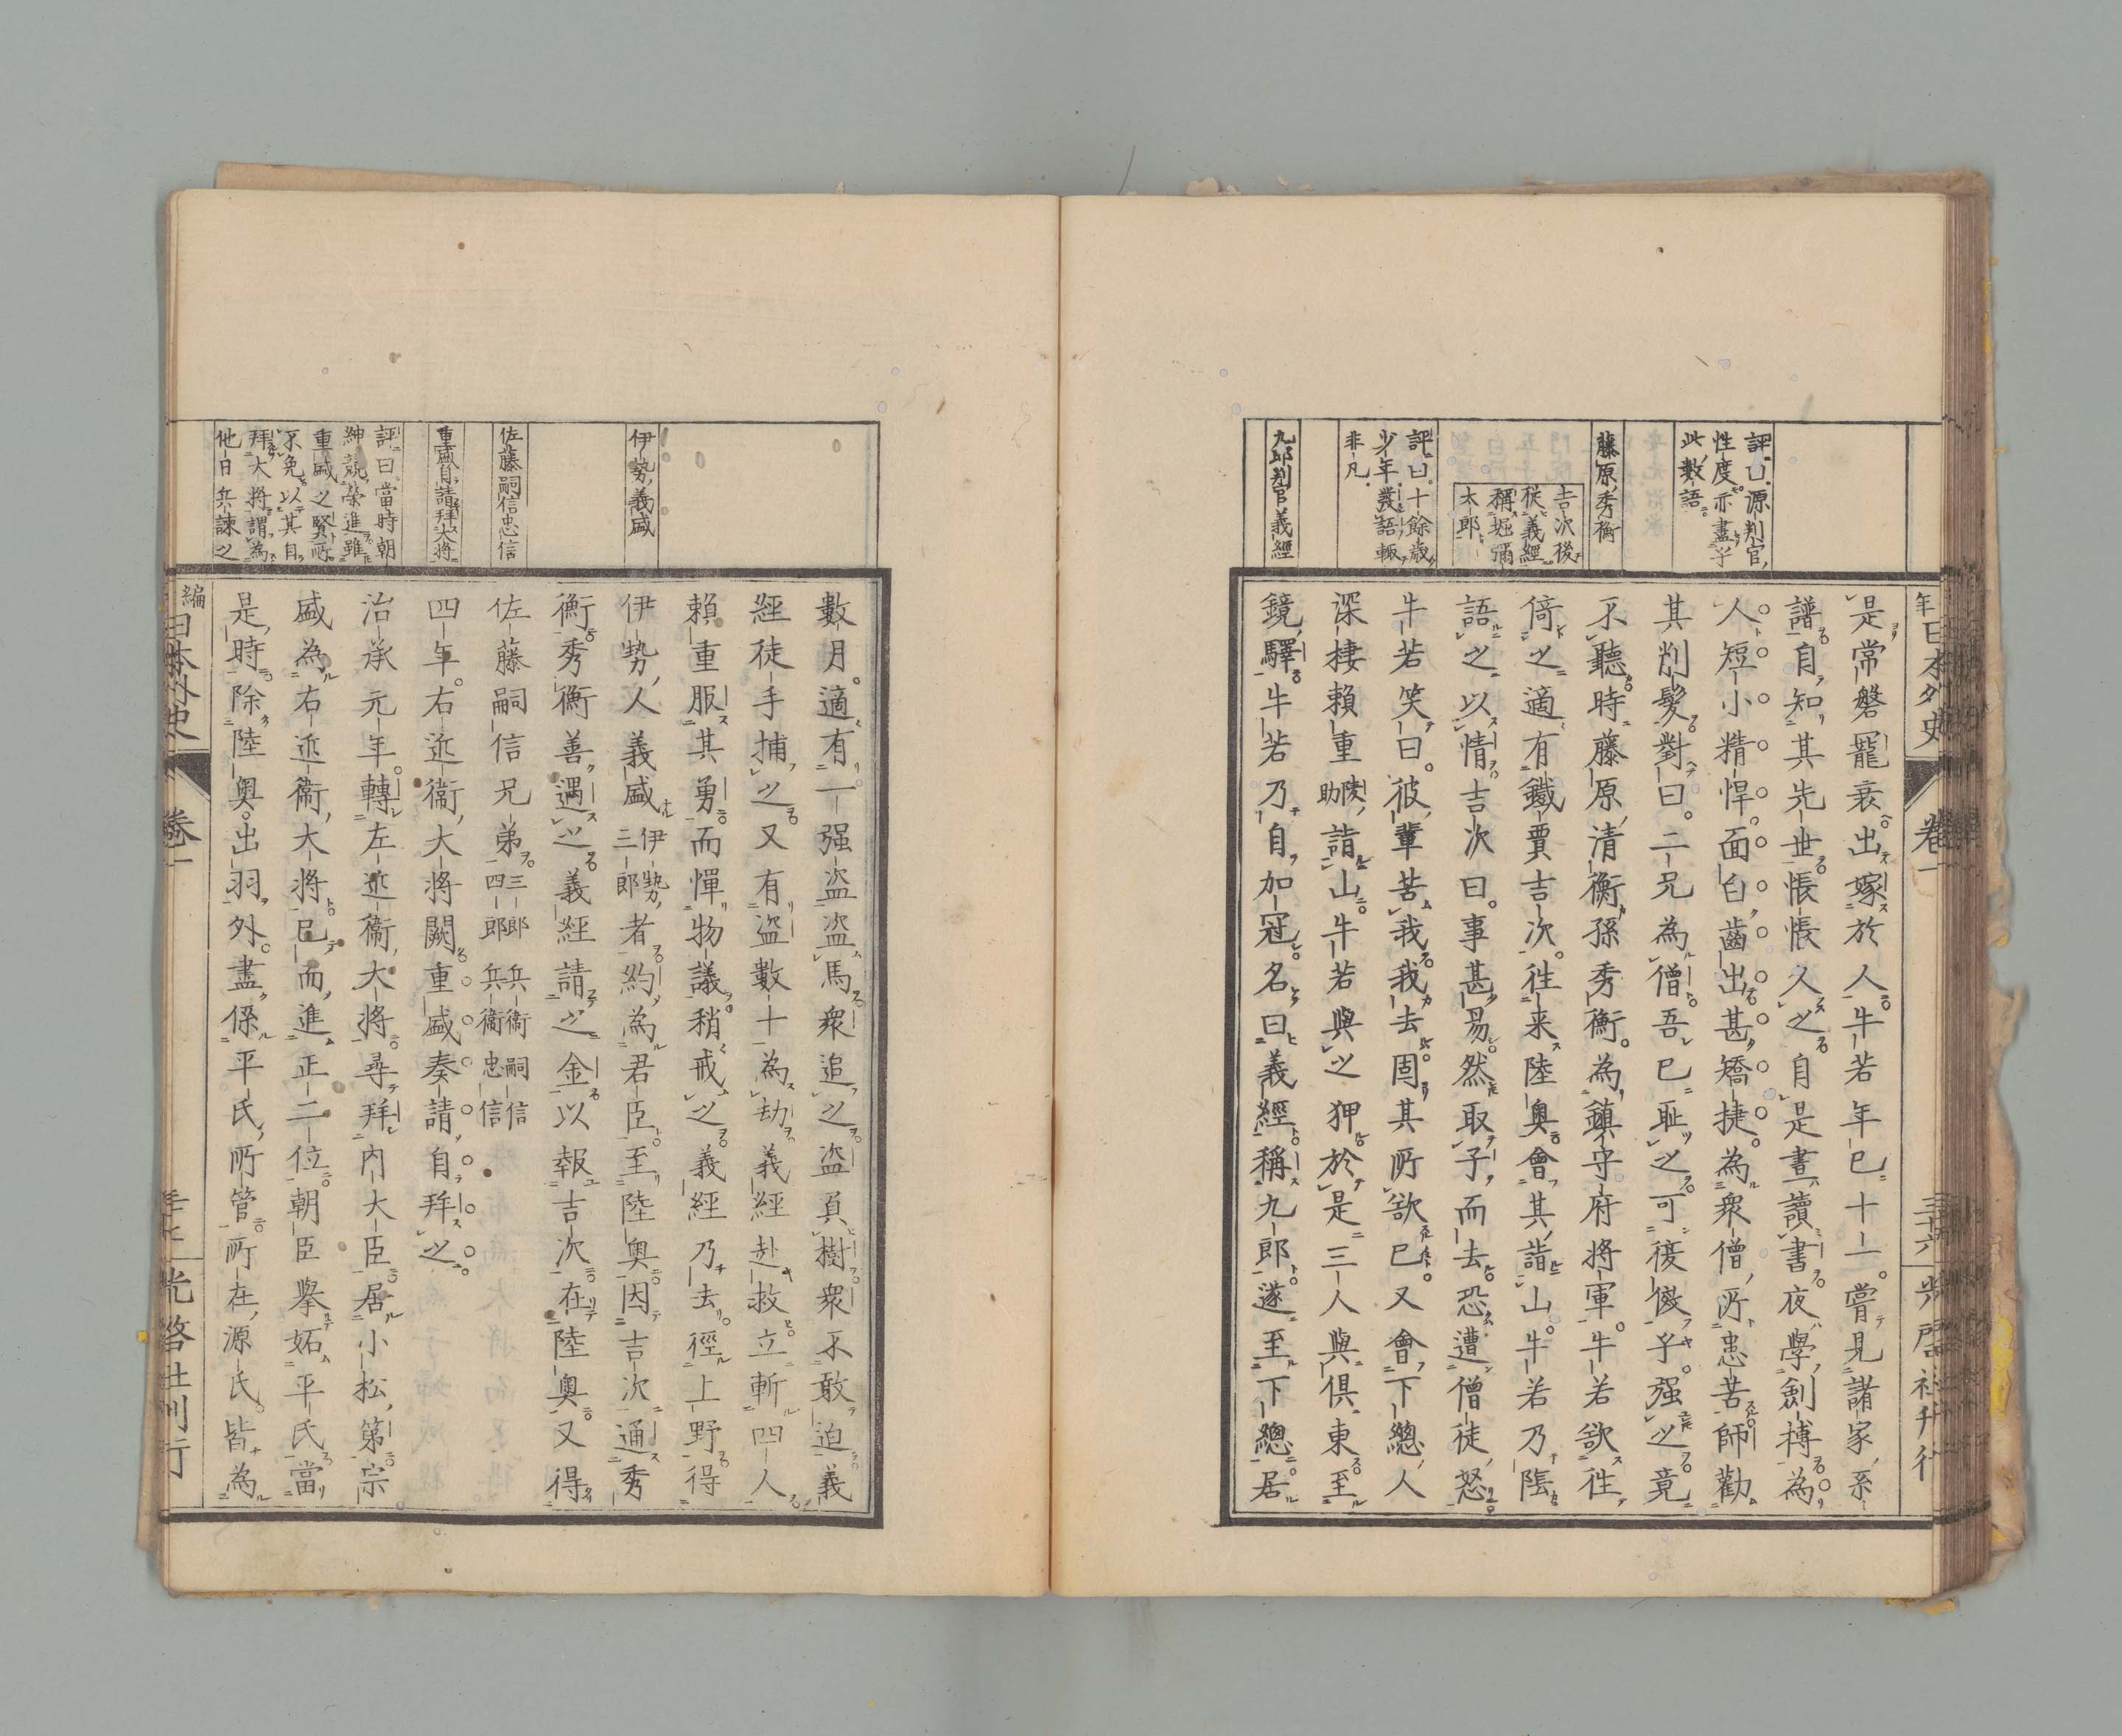 年日本外史
卷一
三十六
光啓社刊行
評曰源判官
性度亦盡乎
此數語
藤原秀衡
吉次後
從義經
稱堀彌
太郎
評曰十餘歲
少年發語輒
非凡
九郎判官義經
是常磐寵衰出嫁於人牛若年已十一嘗見諸家系
譜自知其先世悵悵久之自是晝讀書夜學劍搏為
人短小精悍面白齒出甚矯捷為衆僧所患苦師勸
其削髮對曰二兄為僧吾已耻之可復傚乎强之竟
不聽時藤原清衡孫秀衡為鎮守府將軍牛若欲往
倚之適有鐵賈吉次往来陸奧會其詣山牛若乃陰
語之以情吉次曰事甚易然取子而去恐遭僧徒怒
牛若笑曰彼輩苦我我去固其所欲已又會下總人
深棲賴重陵助詣山牛若與之狎於是三人與俱東至
鏡驛牛若乃自加冠名曰義經稱九郎遂至下總居
伊勢義盛
佐藤嗣信忠信
重盛自請拜大將
評曰當時朝
紳競榮進雖
重盛之賢所
不免以其自
拜大將謂為
他日兵諫之
數月適有一强盜盜馬衆追之盜負樹衆不敢迫義
經徒手捕之又有盜數十為劫義經赴救立斬四人
賴重服其勇而憚物議稍戒之義經乃去徑上野得
伊勢人義盛伊勢二郎者約為君臣至陸奧因吉次通秀
衡秀衡善遇之義經請之金以報吉次在陸奧又得
佐藤嗣信兄弟三郎兵衞嗣信四郎兵衞忠信
四年右近衞大將闕重盛奏請自拜之
治承元年轉左近衞大將尋拜内大臣居小松第宗
盛為右近衞大將已而進正二位朝臣擧妬平氏當
是時除陸奧出羽外盡係平氏所管所在源氏皆為
編日本外史
卷一
光啓社刊行